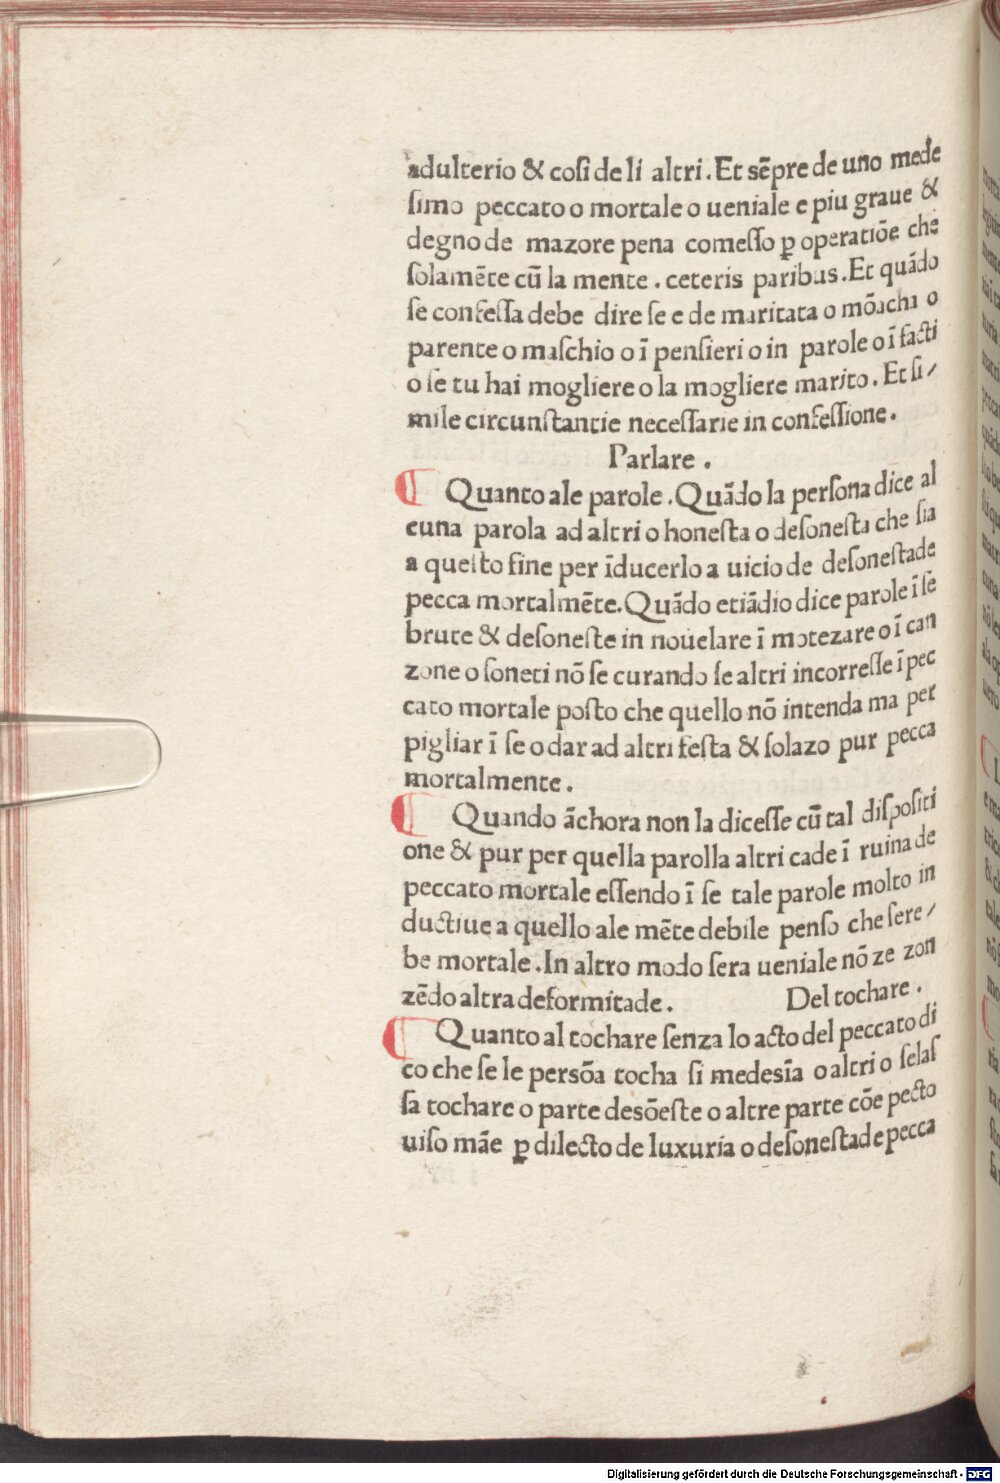 adulterio & coſi de li altri. Et sēpre de uno mede
ſimo peccato o mortale o ueniale e piu graue &
degno de mazore pena comeſſo ꝑ operatiōe che
ſolamēte cū la mente. ceteris paribus. Et quādo
ſe confeſſa debe dire ſe e de maritata o mōacha o
parente o maſchio o ī penſieri o in parole o ī facti
o ſe tu hai mogliere o la mogliere marito. Et ſi/
mile circunſtantie neceſſarie in confeſſione.
Parlare.
¶ Quanto ale parole. Quādo la perſona dice al
cuna parola ad altri o honeſta o deſoneſta che ſia
a queſto fine per īducerlo a uicio de deſoneſtade
pecca mortalmēte. Quādo etiādio dice parole ī ſe
brute & deſoneſte in nouelare ī motezare o ī can
zone o ſoneti nō ſe curando ſe altri incorreſſe ī pec
cato mortale poſto che quello nō intenda ma per
pigliar ī ſe o dar ad altri feſta & ſolazo pur pecca
mortalmente.
¶ Quando āchora non la diceſſe cū tal diſpoſiti
one & pur per quella parolla altri cade ī ruina de
peccato mortale eſſendo ī ſe tale parole molto in
ductiue a quello ale mēte debile penſo che ſere/
be mortale. In altro modo ſera ueniale nō ze zon
zēdo altra deformitade. Del tochare.
¶ Quanto al tochare ſenza lo acto del peccato di
co che ſe le perſōa tocha ſi medesīa o altri o ſelaſ
ſa tochare o parte desōeſte o altre parte cōe pecto
uiſo māe ꝑ dilecto de luxuria o deſoneſtade pecca
Digitalisierung gefördert durch die Deutsche Forschungsgemeinschaft - DFG